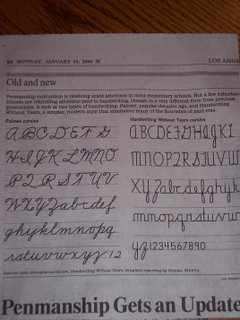 MONDAY, JANUARY 30, 2006
LOS ANG
Old and new
Penmanship instruction is receiving scant attention in most elementary schools. But a few suburban
schools are redoubling attention paid to handwriting, though in a very different form from previous
generations. A look at two types of handwriting: Palmer, popular decades ago, and Handwriting
Without Tears, a simpler, modern style that eliminates many of the flourishes of past eras.
Palmer cursive
ABCDEFG
HIJKLMNO
PQRSTUV
WXYZabcdef
ghijklmnopq
rstuvwxyz12
Handwriting Without Tears cursive
ABCDEFGHIJKL
MNOPQRSTUVW
XYZabcdefghijk
mnopqrstuvw
yz1234567890
Handwriting Without Tears.
Los Angeles
Penmanship Gets an Update